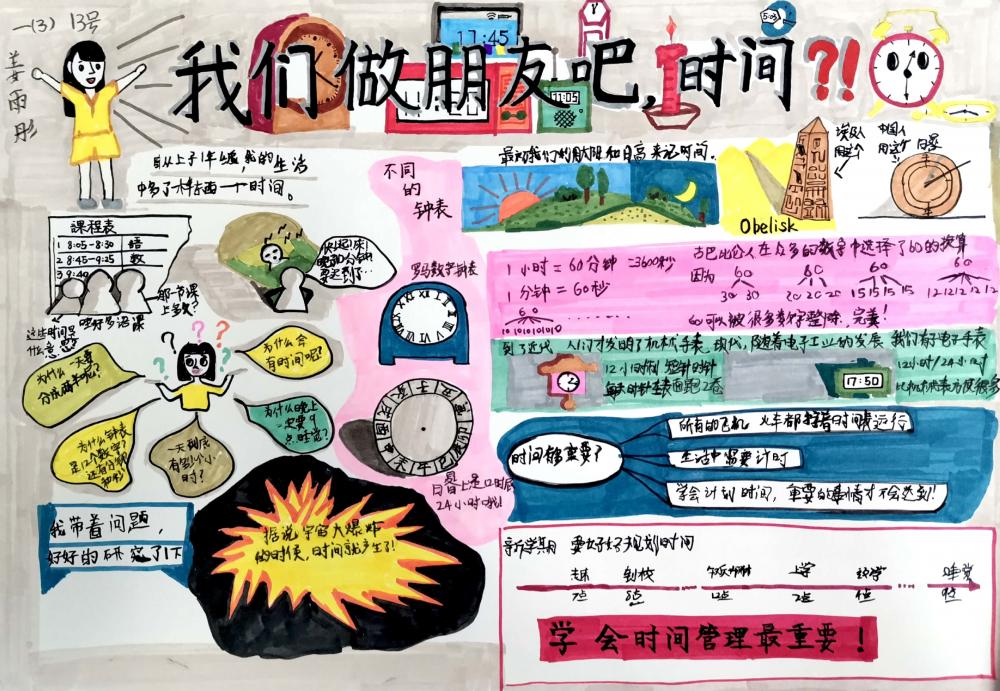 一(3) 13号
姜雨彤
我们做朋友吧,时间?!
17:45
11:05
5:03
自从上了1年级,我的生活
中多了一样东西——个时间。
课程表
1 8:05-8:30 语
2 8:45-9:25 数
3 9:40
那一节课
上多久?
哎好多语课
这些时间是
什么意思
快起床!
晚10分钟
要迟到了…
为什么一天要
分成两半呢?
为什么会
有时间呢?
为什么钟表
是12个数字?
还有分钟
和秒
一天到底
有多少个小
时?
为什么晚上
一定要9
点睡觉?
我带着问题,
好好的研究了1下
据说宇宙大爆炸
的时候,时间就产生了!
不同
的
钟表
罗马数字钟表
日晷上是12时辰
24小时哦!
最初我们的用太阳和日高来记时间.
Obelisk
埃及人
用这个
中国人
用这个
日晷
1小时=60分钟=3600秒
1分钟=60秒
古巴比伦人在众多的数字中选择了60的换算
因为
60
30 30
60
20 20 20
60
15 15 15 15
60
12 12 12 12 12
60
10 10 10 10 10 10
60可以被很多数字整除,完美!
到了近代,人们才发明了机械手表,现代,随着电子工业的发展,我们有了电子表
12小时制,
每天时针在表面跑2卷
17:50
12小时/24小时
比机械表方便很多
时间有多重要?
所有的飞机、火车都按着时间表运行
生活中需要计时
学会计划时间,重要的事情才不会迟到!
新学期 要好好规划时间
起床 到校 午休 上学 放学 睡觉
7点 8点 12点 2点 4点 9点
学会时间管理最重要!